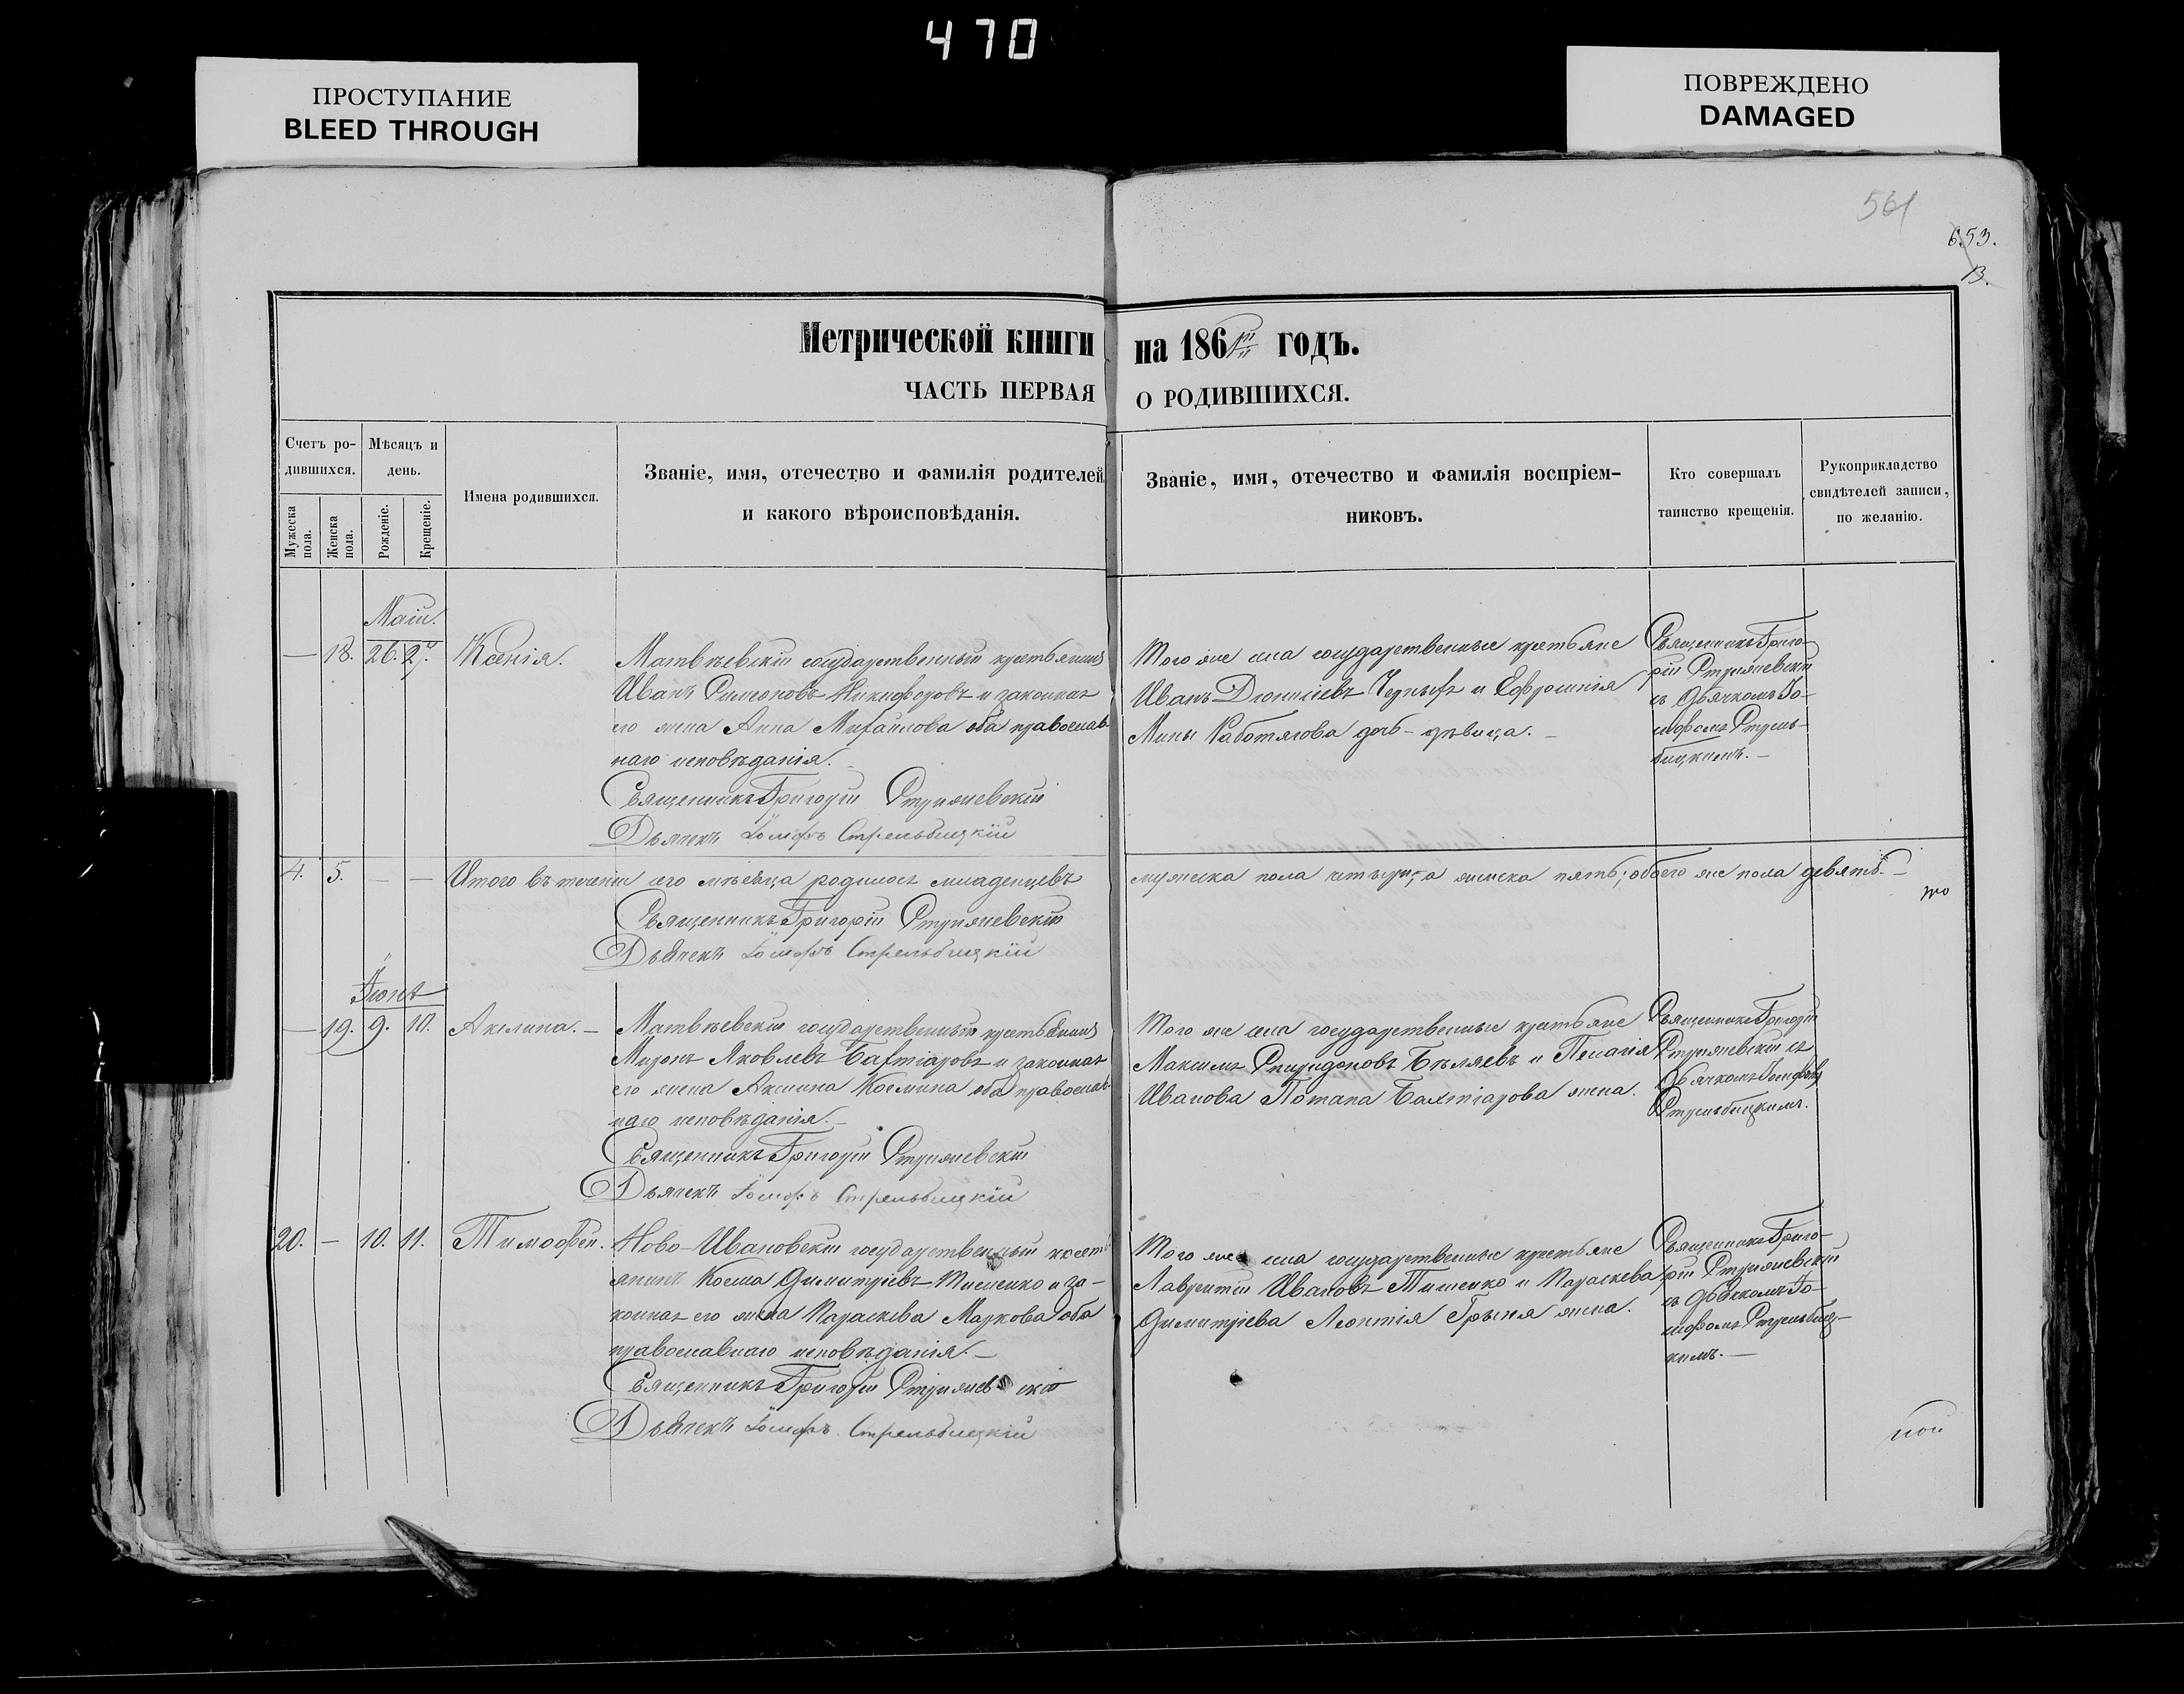 470
ПРОСТУПАНИЕ
BLEED THROUGH
ПОВРЕЖДЕНО
DAMAGED
561
653.
13.
Метрической книги на 186 годъ.
ЧАСТЬ ПЕРВАЯ О РОДИВШИХСЯ.
Счетъ ро-
дившихся.
Мужеска пола.
Женска пола.
Мѣсяцъ и
день.
Рожденіе.
Крещеніе.
Имена родившихся.
Званіе, имя, отечество и фамилія родителей,
и какого вѣроисповѣданія.
Званіе, имя, отечество и фамилія воспріем-
никовъ.
Кто совершалъ
таинство крещенія.
Рукоприкладство
свидѣтелей записи,
по желанію.
Маій.
— 18. 26. 27. Ксенія.
Матвѣевскій государственный крестьянинъ
Иванъ Симеоновъ Никифоровъ и законная
его жена Анна Михайлова оба православ-
наго исповѣданія.
Священникъ Григорій Стрижевскій
Дьячекъ Іосифъ Стрельбицкій
Того же села государственные крестьяне
Иванъ Діонисіевъ Черныхъ и Ефросинія
Мины Работягова дочь-дѣвица. —
Священникъ Григо-
рій Стрижевскій
съ Дьячкомъ Іо-
сифомъ Стрель-
бицкимъ. —
4. 5. — — Итого въ теченіи сего мѣсяца родилось младенцевъ мужеска пола четыре, а женска пять, обоего же пола девять. —
Священникъ Григорій Стрижевскій
Дьячекъ Іосифъ Стрельбицкій
Іюнь
— 19. 9. 10. Акилина. —
Матвѣевскій государственный крестьянинъ
Миронъ Яковлевъ Бахтіаровъ и законная
его жена Акилина Космина оба православ-
наго исповѣданія. —
Священникъ Григорій Стрижевскій
Дьячекъ Іосифъ Стрельбицкій
Того же села государственные крестьяне
Максимъ Спиридоновъ Бѣляевъ и Пелагія
Иванова Потапа Бахтіарова жена.
Священникъ Григорій
Стрижевскій съ
Дьячкомъ Іосифомъ
Стрельбицкимъ.
20. — 10. 11. Тимофей.
Ново-Ивановскій государственный кресть-
янинъ Косма Димитріевъ Тищенко и за-
конная его жена Параскева Маркова оба
православнаго исповѣданія. —
Священникъ Григорій Стрижевскій
Дьячекъ Іосифъ Стрельбицкій
Того же села государственные крестьяне
Лаврентій Ивановъ Тищенко и Параскева
Димитріева Леонтія жена.
Священникъ Григо-
рій Стрижевскій
съ Дьячкомъ Іо-
сифомъ Стрельбиц-
кимъ. —